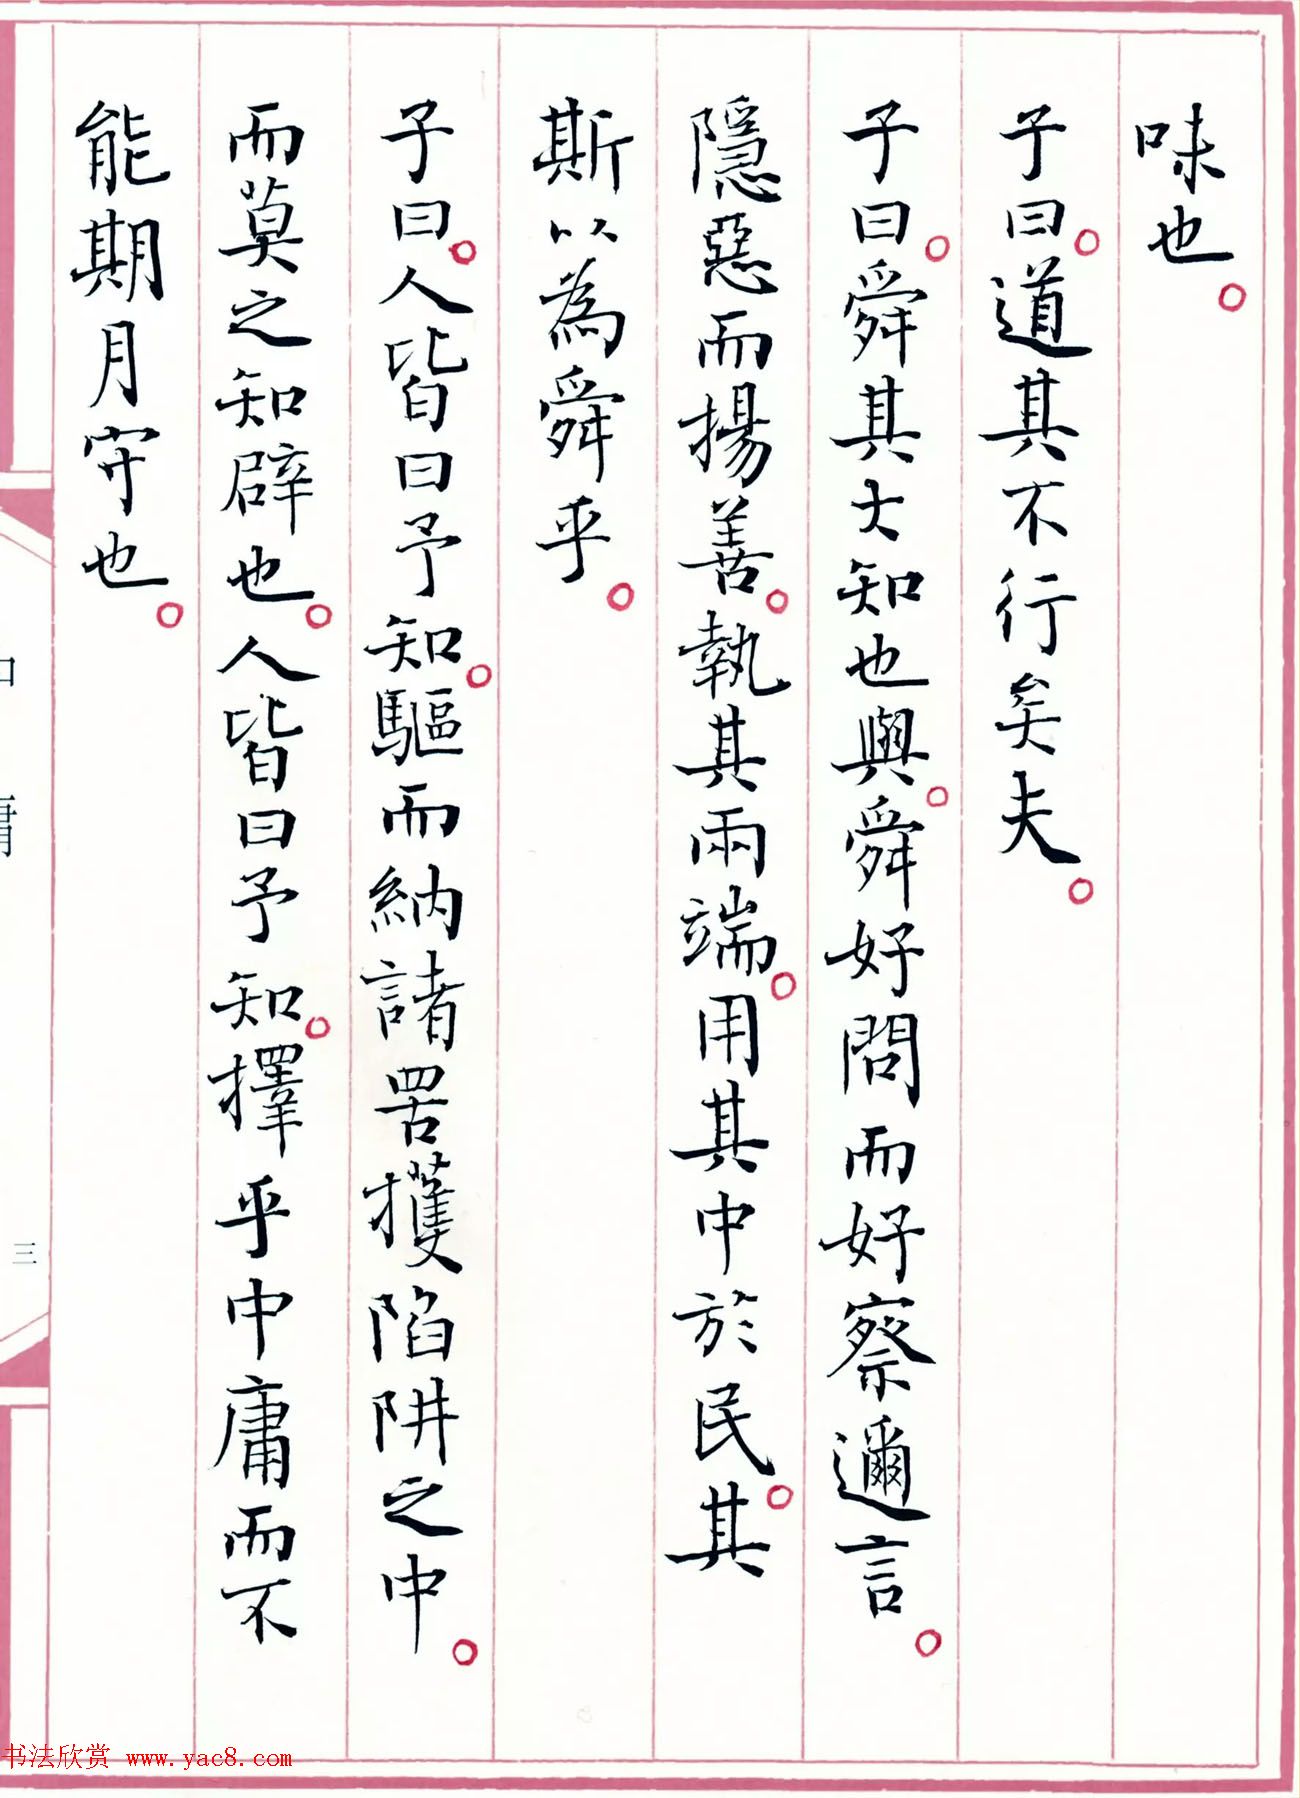 味也。
子曰。道其不行矣夫。
子曰。舜其大知也與。舜好問而好察邇言。
隱惡而揚善。執其兩端。用其中於民。其
斯以為舜乎。
子曰。人皆曰予知。驅而納諸罟擭陷阱之中。
而莫之知辟也。人皆曰予知。擇乎中庸而不
能期月守也。
三
书法欣赏 www.yac8.com